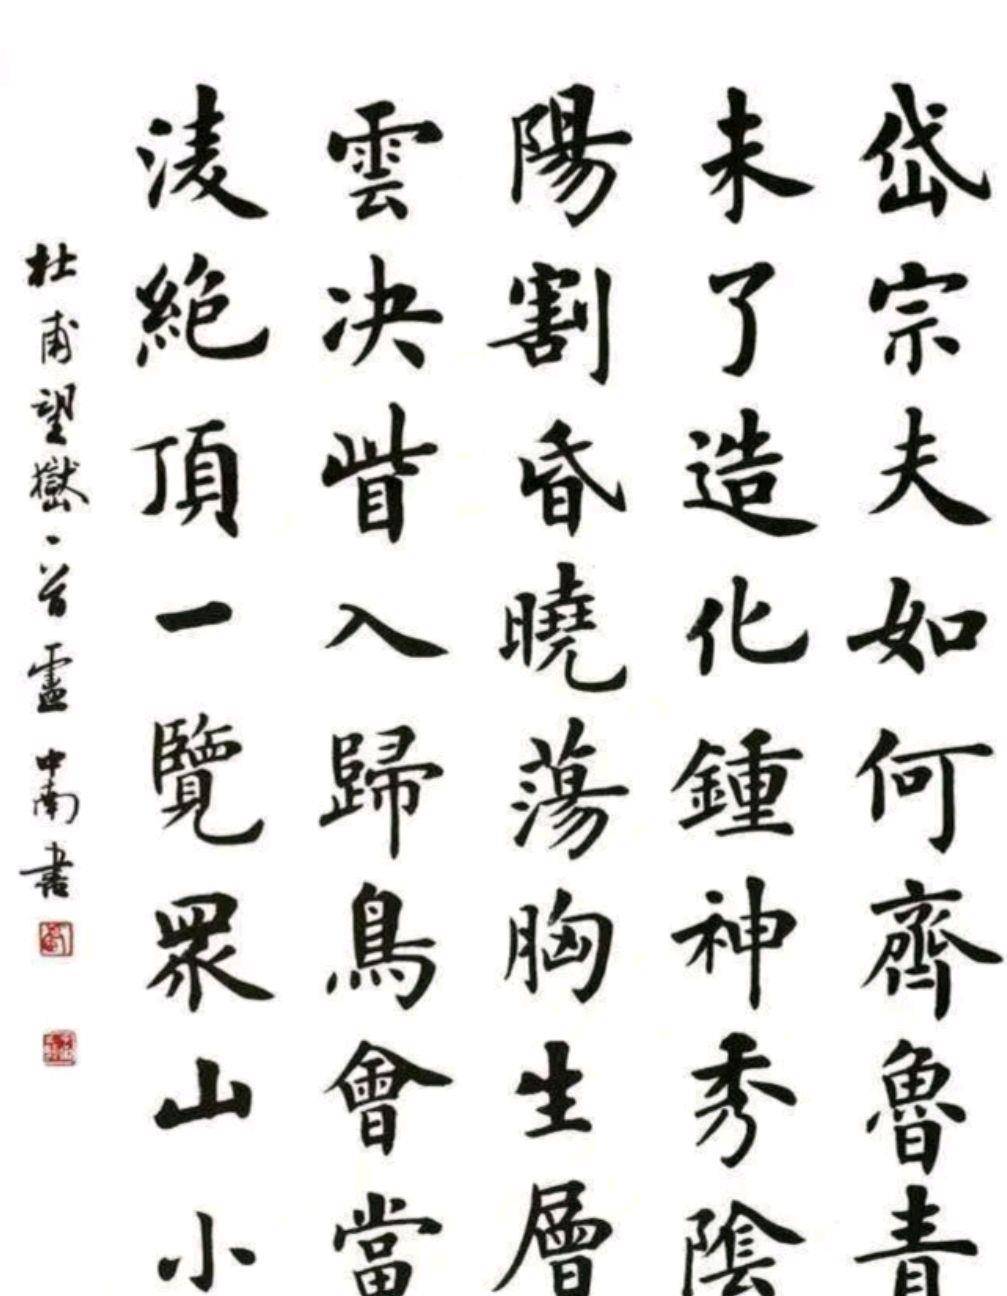 岱宗夫如何齊魯青
未了造化鍾神秀陰
陽割昏曉蕩胸生層
雲決眥入歸鳥會當
淩絕頂一覽眾山小
杜甫望嶽一首盧中南書